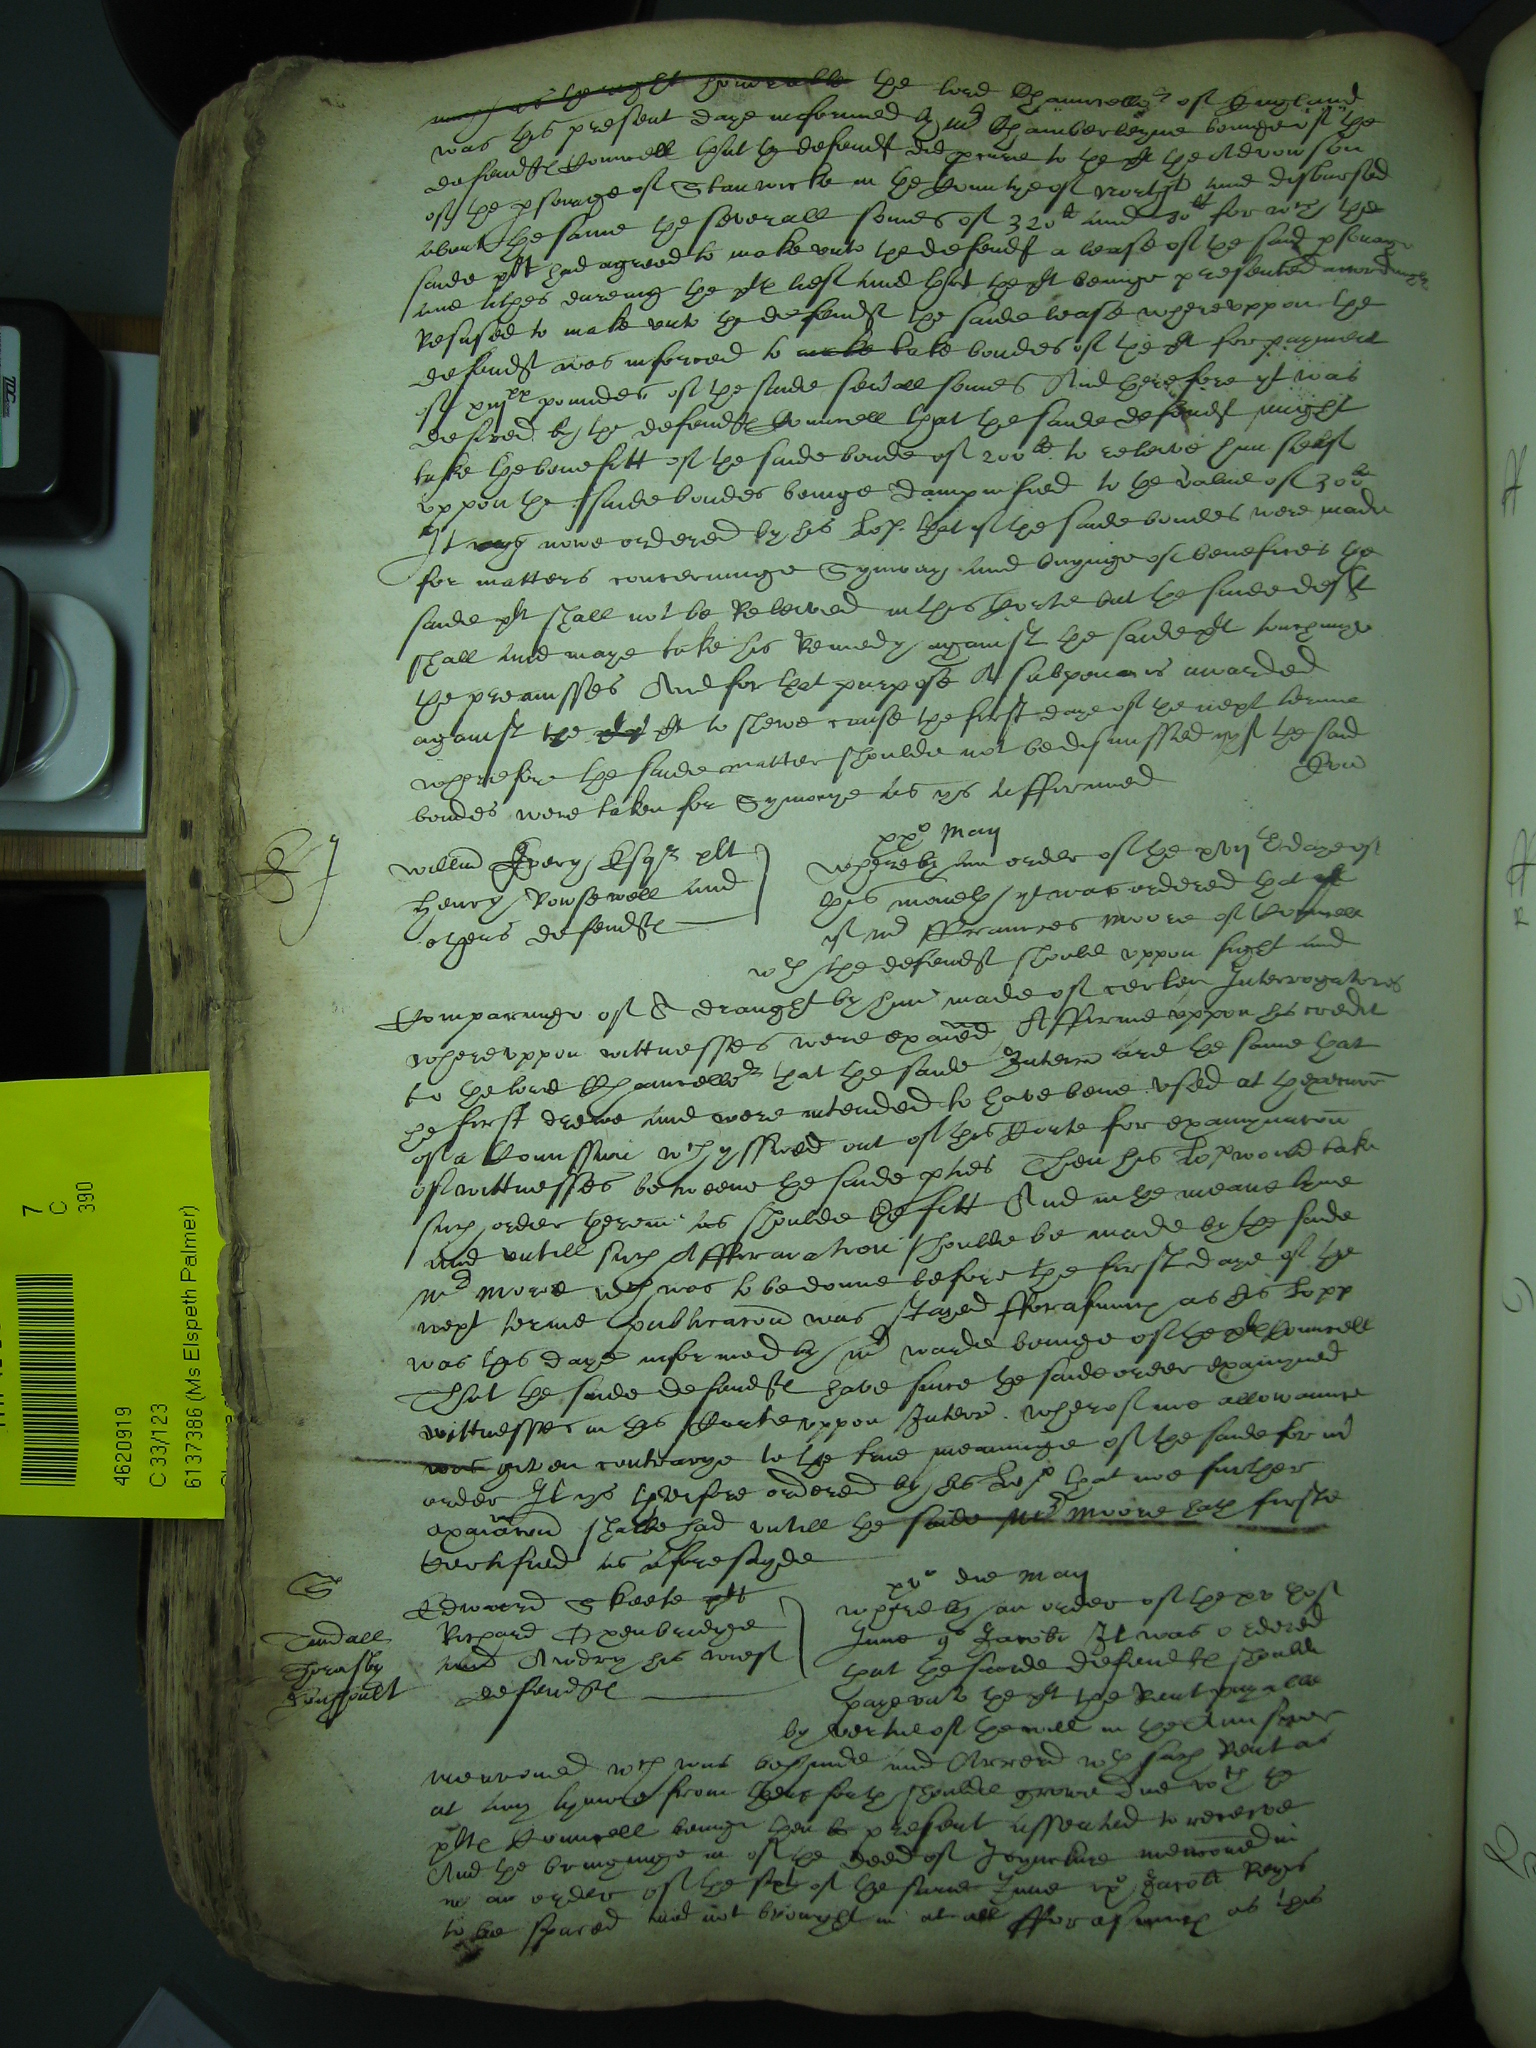 the lord Chauncellor of England
was this present daye informed by Mr Chamberleyne beinge of the
defendtes Councell that the defendt did procure to the plt the Advowson
of the psonage of Stanwicke in the Countye of Northt and disbursed
about the same the severall somes of 320li and for wch the
saide plt had agreed to make unto the defendt a lease of the said psonage
and tithes dureing the plts lief and that the plt beinge presented accordinglye
Refused to make unto the defendt the saide lease whereuppon the
defendt was inforced to take bondes of the plt for payment
of poundes of the saide sevall somes And therefore yt was
desired by the defendtes Councell that the saide defendt might
take the benefitt of the saide bonde of 200li to releive him self
uppon the saide bondes beinge dampnified to the value of 300li
It was nowe ordered by his Lop. that if the saide bondes were made
for matters concerninge Symony and buyinge of benefices the
saide plt shall not be Releived in this Corte but the saide deft
shall and maye take his Remedy against the saide plt touchinge
the premisses And for that purpose A subpena is awarded
against the plt to shewe cause the first daye of the next terme
wherefore the saide matter shoulde not be dismissed yf the said
bondes were taken for Symonye as ys affirmed
xxo May
Willm Esqr plt
Henry Rowsewell and
others defendtes
Whereby an order of the xvijth daye of
this moneth yt was ordered that
if Mr Fraunces Moore of Councell
wth the defendt should uppon sight and
Comparinge of A draught by him made of certen Interrogatores
whereuppon wittnesses were examed Affirme uppon his credit
to the lord Chauncellor that the saide Interr are the same that
he first drewe and were intended to have bene used at the
of a Comission wch yssued out of this Corte for examynacon
of wittnesses betweene the saide pties Then his Lop would take
such order therein as shoulde be fitt And in the meane tyme
and untill such Affirmation shoulde be made by the saide
Mr Moore wch was to be donne before the first daye of the
next terme publicacon was stayed Fforasmuch as his Lopp
was this daye informed by Mr Warde beinge of the plts Councell
That the saide defendtes have since the saide order examyned
wittnesses in this Corte uppon Interr. whereof noe allowaunce
was given contrarye to the true meaninge of the saide former
order It ys therefore ordered by his Lop that noe further
examacon shalbe had untill the saide Mr Moore hath firste
Certified as aforesayde
xxo die May
Tindall
Thoresby
Edward Skeete plt
Richard Oxenbridge
and Awdry his wief
defendtes
Whereby an order of the xv of
June 9o Jacobi It was ordered
that the saide defendtes should
paye unto the plt the Rent payable
by vertue of the will in the Aunswer
mencioned wch was behinde and Arrerd wth such Rent as
at any tyme from thenceforth shoulde growe due wch the
plts Councell beinge then present assented to receive
And the bringinge in of the deed of Joyncture mencioned in
an order of the of the same June Jacobi Regis
to be spared and not brought in at all Fforasmuch as this
4620919
C 33/123
6137386 (Ms Elspeth Palmer)
7
C
390